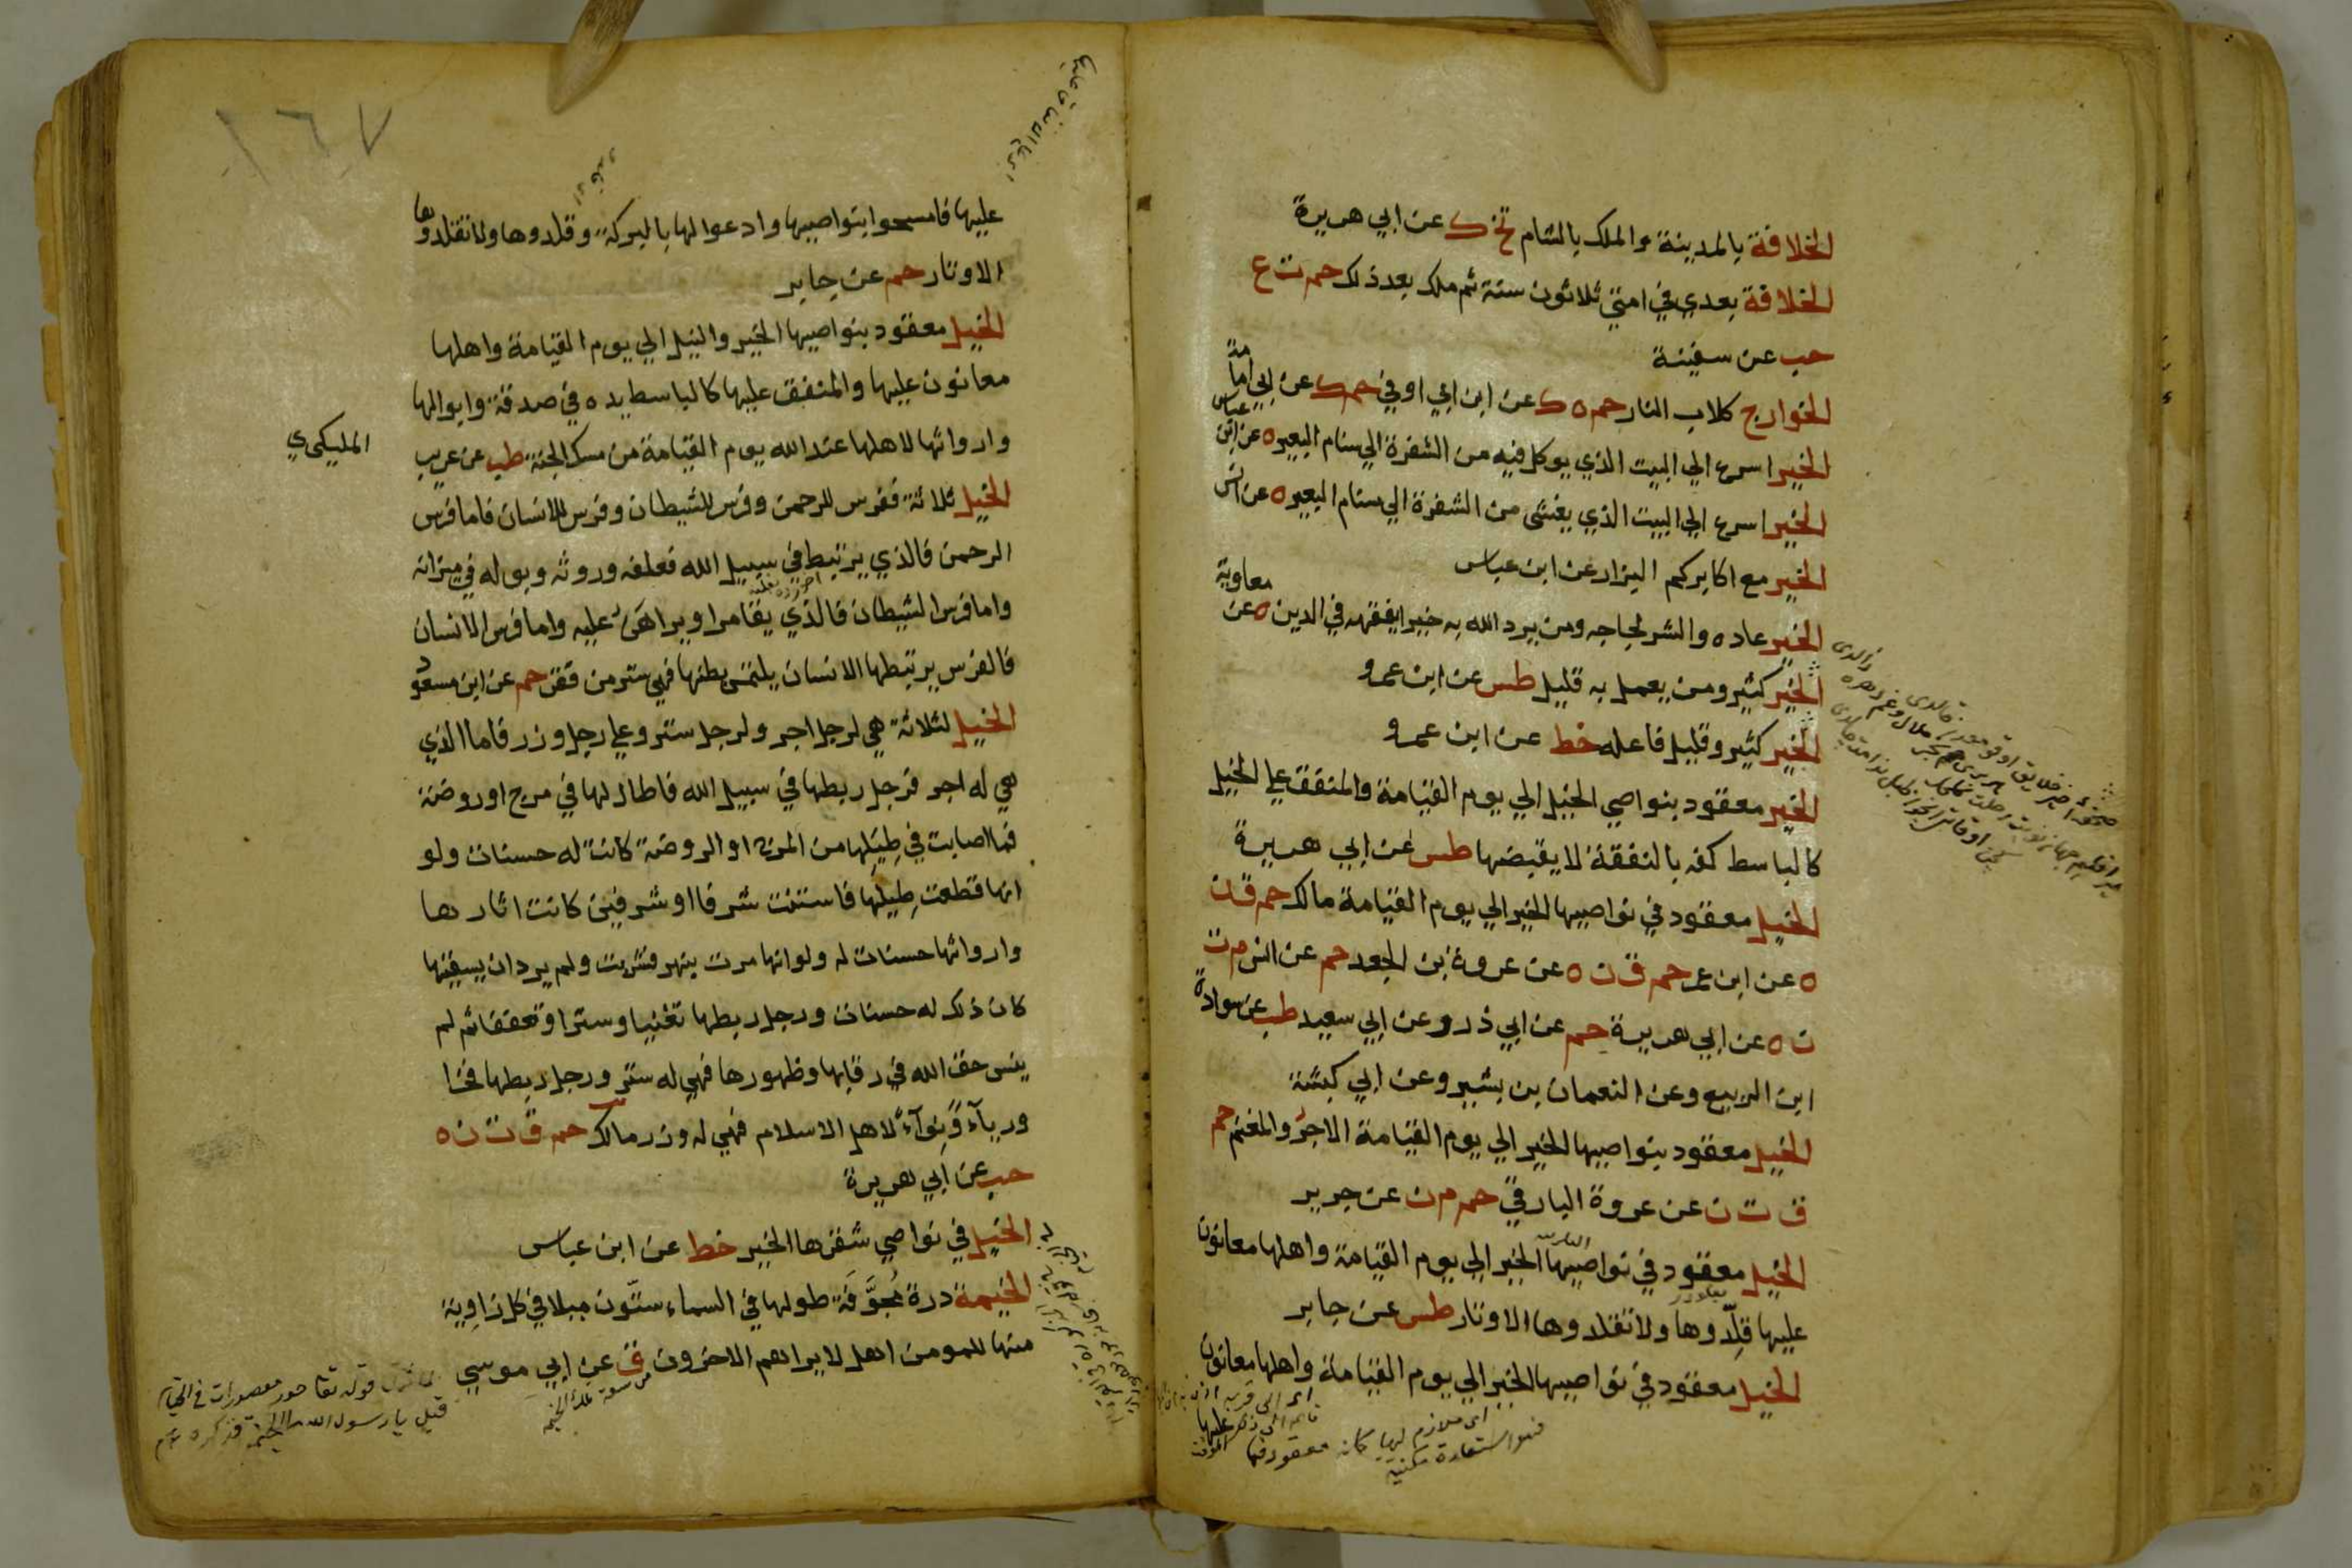 الخلافة بالمدينة والملك بالشام تخ ك عن ابي هريرة
الخلافة بعدي في امتي ثلاثون سنة ثم ملك بعد ذلك حم ت ع
حب عن سفينة
الخوارج كلاب النار حم ه ك عن ابن ابي اوفي حم ك عن ابي امامة
الخير اسرع الي البيت الذي يوكل فيه من الشفرة الي سنام البعير ه عن ابن عباس
الخير اسرع الي البيت الذي يغشى من الشفرة الي سنام البعير ه عن انس
الخير مع اكابركم البزار عن ابن عباس
الخير عاده والشر لجاجه ومن يرد الله به خيرا يفقهه في الدين ه عن معاوية
الخير كثير ومن يعمل به قليل طس عن ابن عمرو
الخير كثير وقليل فاعله خط عن ابن عمرو
الخير معقود بنواصي الخيل الي يوم القيامة والمنفق علي الخيل
كالباسط كفه بالنفقة لا يقبضها طس عن ابي هريرة
الخيل معقود في نواصيها الخير الي يوم القيامة مالك حم ق ن
ه عن ابن عمر حم ق ن ه عن عروة بن الجعد حم عن انس م ت
ن ه عن ابي هريرة حم عن ابي ذر وعن ابي سعيد طب عن سوادة
ابن الربيع وعن النعمان بن بشير وعن ابي كبشة
الخيل معقود بنواصيها الخير الي يوم القيامة الاجر والمغنم حم
ق ت ن عن عروة البارقي حم م ن عن جرير
الخيل معقود في نواصيها الخير الي يوم القيامة واهلها معانون
عليها قلِّدوها ولا تقلدوها الاوتار طس عن جابر
الخيل معقود في نواصيها الخير الي يوم القيامة واهلها معانون
عليها
اى ملازم لها كانه معقود فيها
فهو استعارة مكنية
١٦٧
عليها فامسحوا بنواصيها وادعوا لها بالبركة وقلدوها ولا تقلدوها
الاوتار حم عن جابر
الخيل معقود بنواصيها الخير والنيل الي يوم القيامة واهلها
معانون عليها والمنفق عليها كالباسط يده في صدقة وابوالها
وارواثها لاهلها عند الله يوم القيامة من مسك الجنة طب عن عريب
المليكي
الخيل ثلاثة ففرس للرحمن وفرس للشيطان وفرس للانسان فاما فرس
الرحمن فالذي يرتبط في سبيل الله فعلفه وروثه وبوله في ميزانه
واما فرس الشيطان فالذي يقامر او يراهن عليه واما فرس الانسان
فالفرس يرتبطها الانسان يلتمس بطنها فهي ستر من فقر حم عن ابن مسعود
الخيل لثلاثة هي لرجل اجر ولرجل ستر وعلي رجل وزر فاما الذي
هي له اجر فرجل ربطها في سبيل الله فاطال لها في مرج او روضة
فما اصابت في طِيَلِها من المرج او الروضة كانت له حسنات ولو
انها قطعت طِيَلَها فاستنت شرفا او شرفين كانت اثارها
وارواثها حسنات له ولو انها مرت بنهر فشربت ولم يرد ان يسقيها
كان ذلك له حسنات ورجل ربطها تغنيا وسترا وتعففا ثم لم
ينس حق الله في رقابها وظهورها فهي له ستر ورجل ربطها فخرا
ورياءً ونِواءً لاهل الاسلام فهي له وزر مالك حم ق ت ن ه
حب عن ابي هريرة
الخيل في نواصي شقرها الخير خط عن ابن عباس
الخيمة درة مُجَوَّفَة طولها في السماء ستّون ميلا في كل زاوية
منها للمومن اهل لا يراهم الاخرون ق عن ابي موسي
قوله تعا حور مقصورات في الخيام
قيل يا رسول الله ما الخيمة فذكره